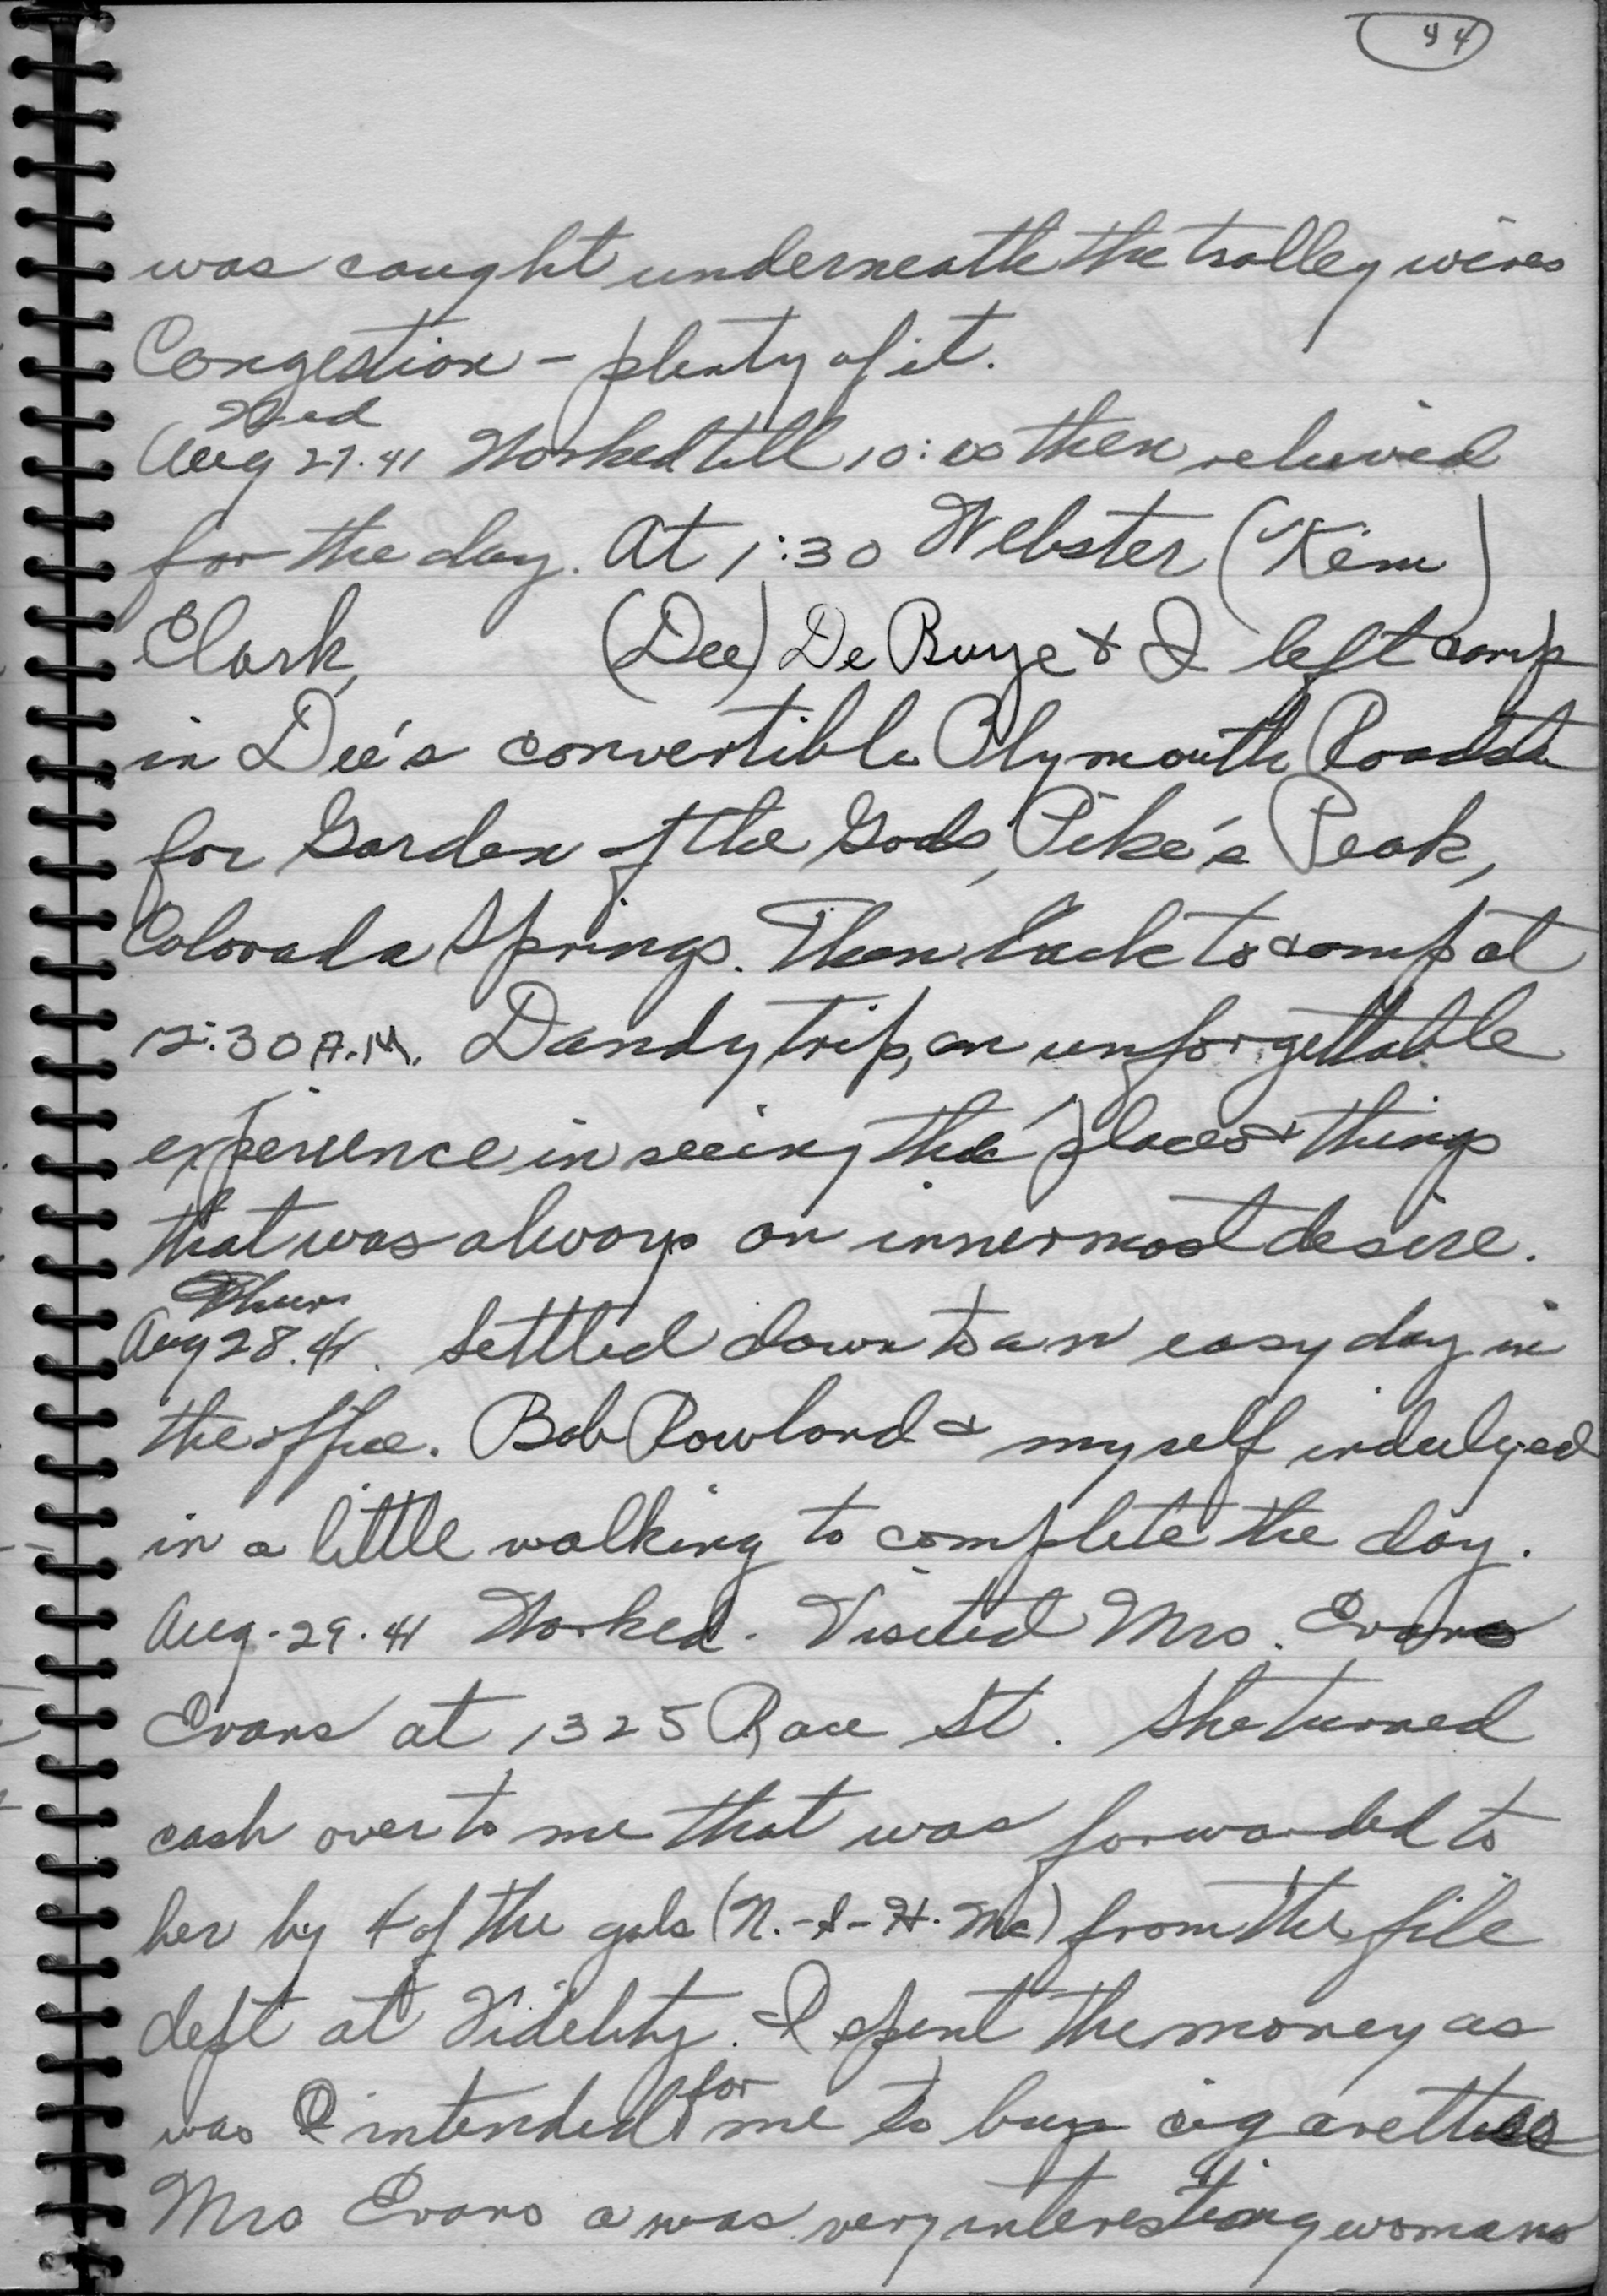 44
was caught underneath the trolley wires
Congestion - plenty of it.
Wed
Aug 27.41 Worked till 10:00 then relieved
for the day. At 1:30 Webster (Kem)
Clark, (Dee) De Buye & I left camp
in Dee's convertible Plymouth Roadster
for Garden of the Gods, Pike's Peak,
Colorado Springs. Then back to camp at
12:30 A.M. Dandy trip, an unforgettable
experience in seeing the places & things
that was always an innermost desire.
Thurs
Aug 28.41. Settled down to an easy day in
the office. Bob Rowland & myself indulged
in a little walking to complete the day.
Aug. 29. 41 Worked. Visited Mrs. Evans
Evans at 1325 Race St. She turned
cash over to me that was forwarded to
her by 4 of the gals (N.-I-H. Mc) from the file
dept at Fidelity. I spent the money as
for
was intended me to buy cigarettes
Mrs Evans a was very interesting woman